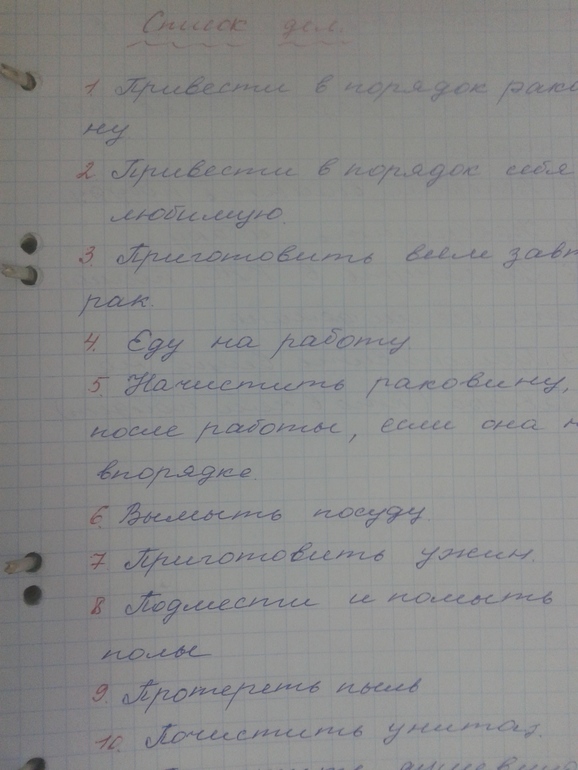 Список дел.
1. Привести в порядок рако
ну
2. Привести в порядок себя
любимую.
3. Приготовить всем завт
рак.
4. Еду на работу.
5. Начистить раковину,
после работы, если она н
впорядке.
6. Вымыть посуду
7. Приготовить ужин.
8. Подмести и помыть
полы
9. Протереть пыль
10. Почистить унитаз.